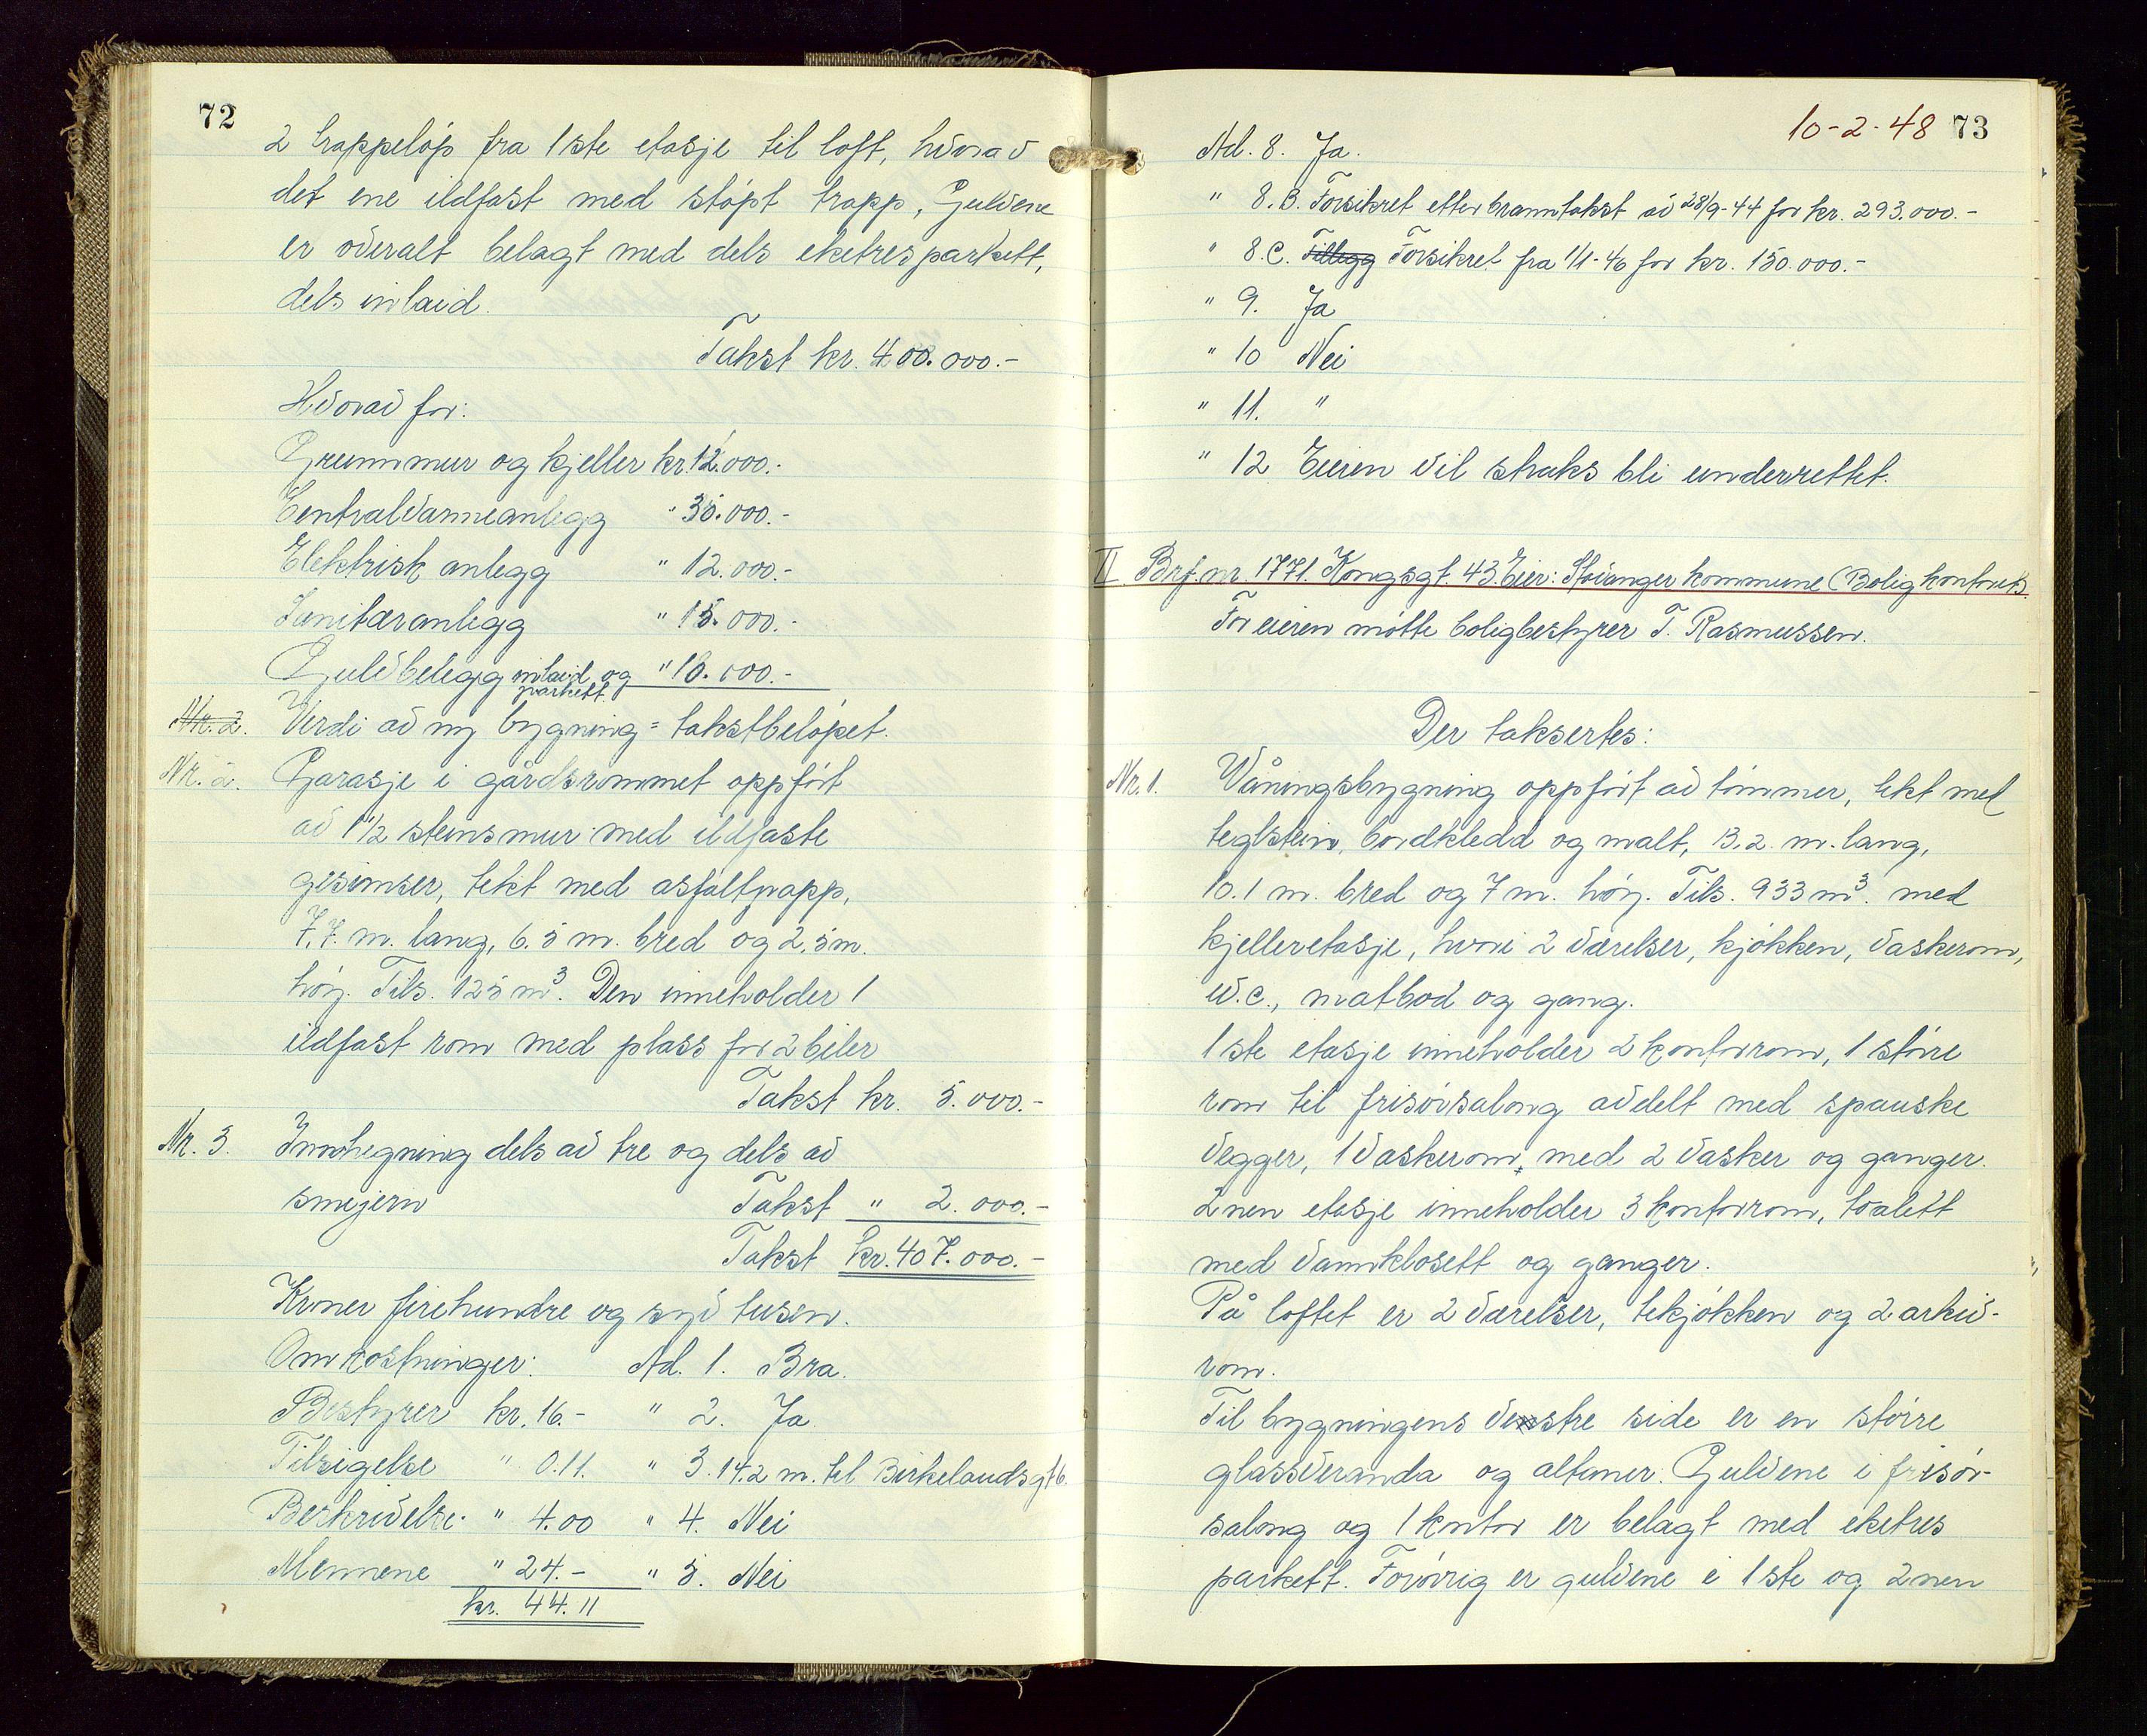 72
2 trappeløp fra 1ste etasje til loft, hvorav
det ene ildfast med støpt trapp, Gulvene
er overalt belagt med dels eketresparkett,
dels inlaid.
Takst kr. 400.000.-
Hvorav for:
Grunnmur og kjeller kr. 12.000.-
Centralvarmeanlegg " 35.000.-
Elektrisk anlegg " 12.000.-
Sanitæranlegg " 15.000.-
Gulvbelegg inlaid og parkett. " 10.000.-
Nr. 2. Verdi av ny bygning = takstbeløpet.
Nr. 2. Garasje i gårdsrommet oppført
av 1 1/2 steinsmur med ildfaste
gesimser, tekt med asfaltpapp,
7,7. m. lang, 6.5 m. bred og 2,5 m.
høy. Tils. 125 m³. Den inneholder 1
ildfast rom med plass for 2 biler
Takst kr. 5.000.-
Nr. 3. Innhegning dels av tre og dels av
smijern Takst " 2.000.-
Takst kr. 407.000.-
Kroner firehundre og syv tusen.
Omkostninger: Ad. 1. Bra.
Bestyrer kr. 16.- " 2. Ja
Tilsigelse " 0.11. " 3. 14.2 m. til Birkelandsgt 6.
Beskrivelse. " 4.00 " 4. Nei
Mennene " 24.- " 5. Nei
kr. 44.11
10-2-48 73
Ad. 8. Ja.
" 8.B. Forsikret etter branntakst av 28/9-44 for kr. 293.000.-
" 8.C. Tillegg Forsikret fra 1/1-46 for kr. 150.000.-
" 9. Ja
" 10 Nei
" 11. "
" 12 Eieren vil straks bli underrettet.
II. Brf. nr. 1771. Kongsgt. 43. Eier: Stavanger kommune (Boligkontoret).
For eieren møtte boligbestyrer T. Rasmussen.
Der taksertes:
Nr. 1. Våningsbygning oppført av tømmer, tekt med
teglstein, bordkledd og malt, 13.2. m. lang,
10.1 m. bred og 7 m. høy. Tils. 933 m³. med
kjelleretasje, hvori 2 værelser, kjøkken, vaskerom,
W.C., matbod og gang.
1ste etasje inneholder 2 kontorrom, 1 større
rom til frisørsalong avdelt med spanske
vegger, 1 vaskerom, med 2 vasker og ganger.
2nen etasje inneholder 3 kontorrom, toalett
med vannklosett og ganger.
På loftet er 2 værelser, tekjøkken og 2 arkiv-
rom.
Til bygningens venstre side er en større
glassveranda og altaner. Gulvene i frisør-
salong og 1 kontor er belagt med eketres
parkett. Forøvrig er gulvene i 1ste og 2nen